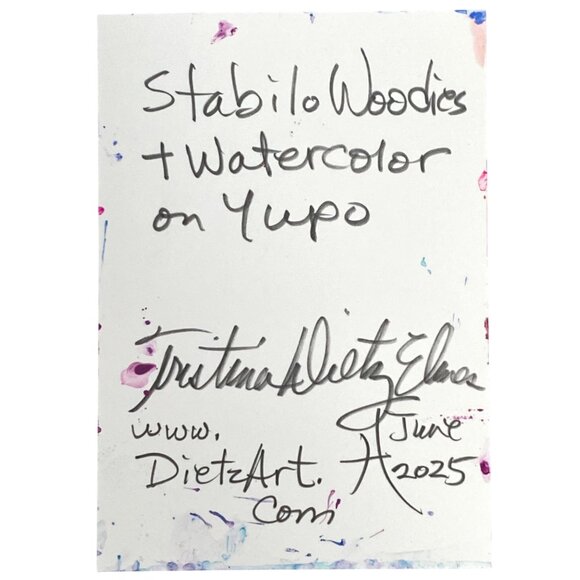 Stabilo Woodies
+ Watercolor
on Yupo
Tristina Dietz Elmes
www.
DietzArt.
Com
June
2025